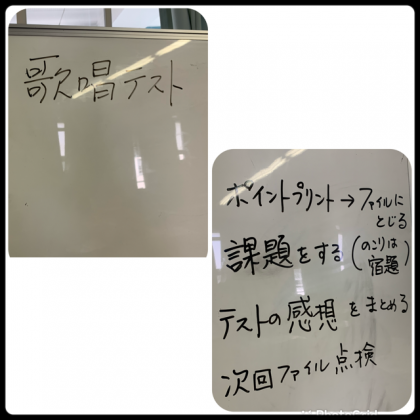 歌唱テスト
ポイントプリント→ファイルに
とじる
課題をする(のこりは
宿題)
テストの感想をまとめる
次回ファイル点検